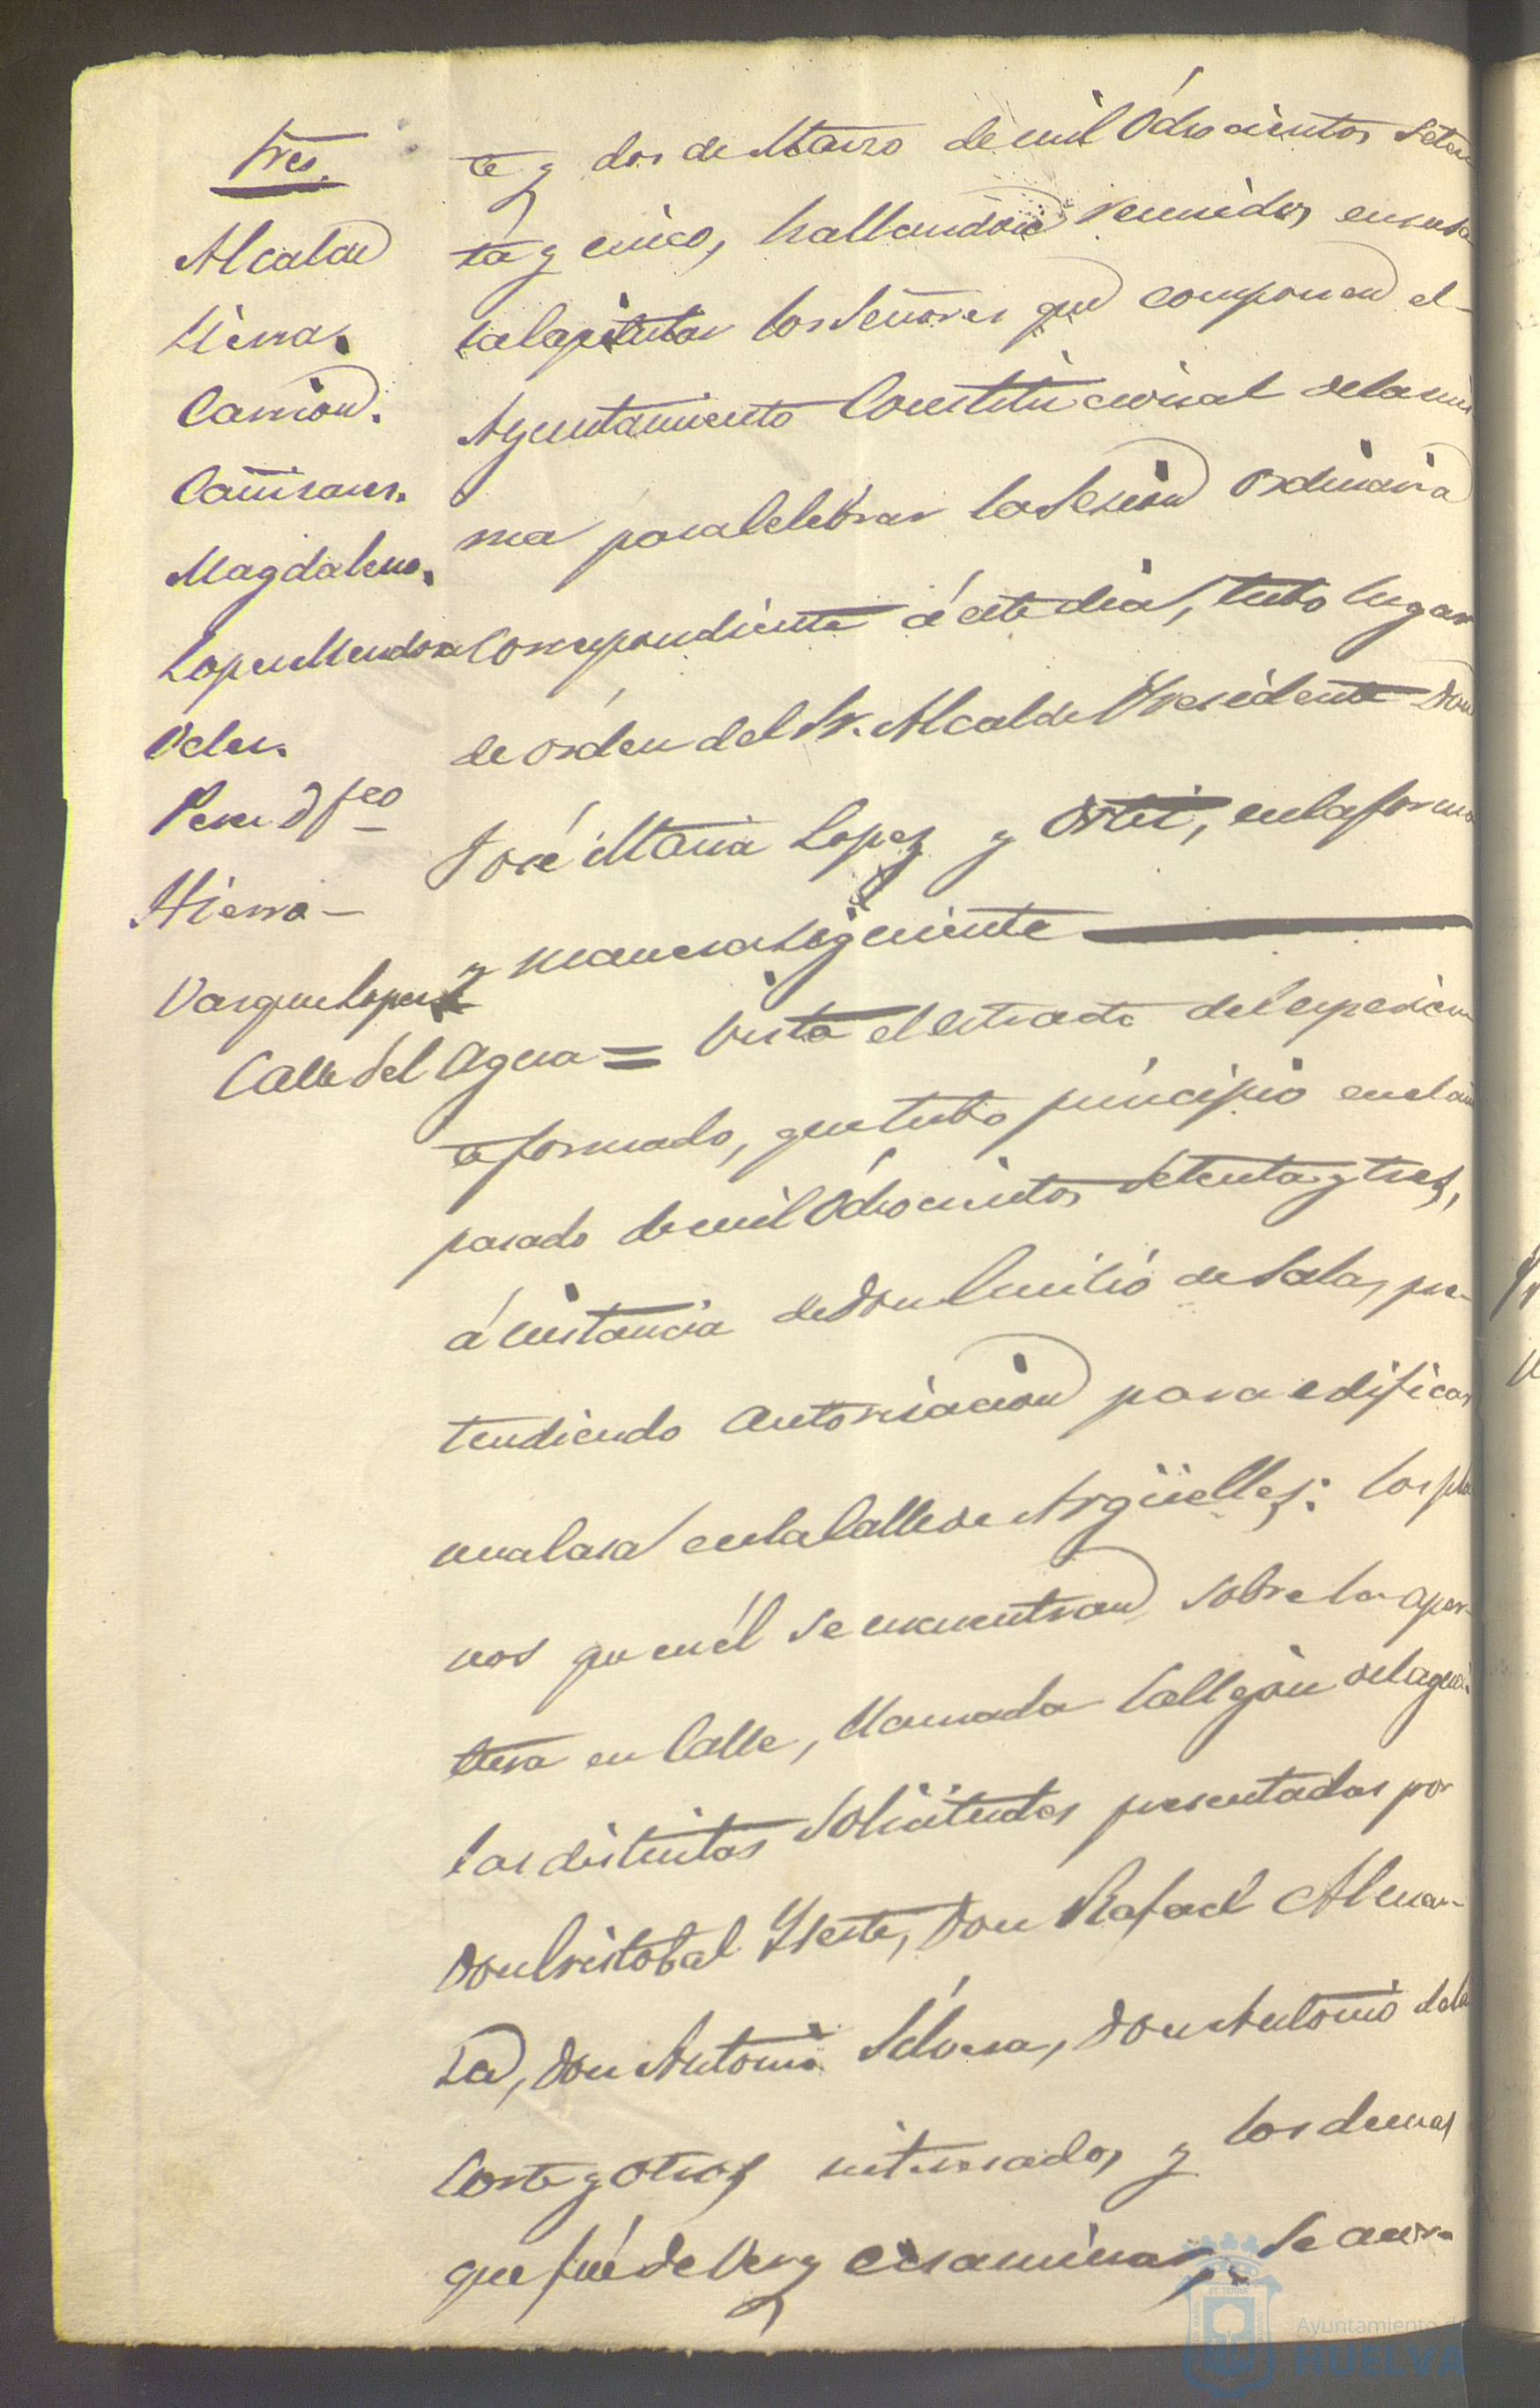 Sres.
Alcalde
Hierra.
Carrion.
Cañisares.
Magdaleno.
Lopez Mendoza
Velez.
Perez D. Fco
Hierro
Vazquez Lopez
te y dos de Marzo de mil Ochocientos Seten-
ta y cinco, hallandose reunidos en su Sa-
la Capitular los Señores que componen el
Ayuntamiento Constitucional de la mis
ma para Celebrar la Sesion Ordinaria
Correspondiente á este dia, tubo lugar
de orden del Sr. Alcalde Presidente Don
José Maria Lopez y Ortiz, en la forma
y manera siguiente
Calle del Agua = Vista el estracto del espedien
te formado, que tubo principio en el año
pasado de mil Ochocientos Setenta y tres,
á instancia de Don Emilio de Salas, pre-
tendiendo autorisacion para edificar
una Casa en la Calle de Argüelles: los pla
nos que en él se encuentran sobre la aper-
tura en Calle, llamada Callejon del agua:
las distintas Solicitudes presentadas por
Don Cristobal Yseste, Don Rafael Alman-
sa, Don Antonio Silvera, Don Antonio de la
Corte y otros interesados, y los demas
que fué de ver y examinar, Se acor-
Ayuntamiento de
HUELVA